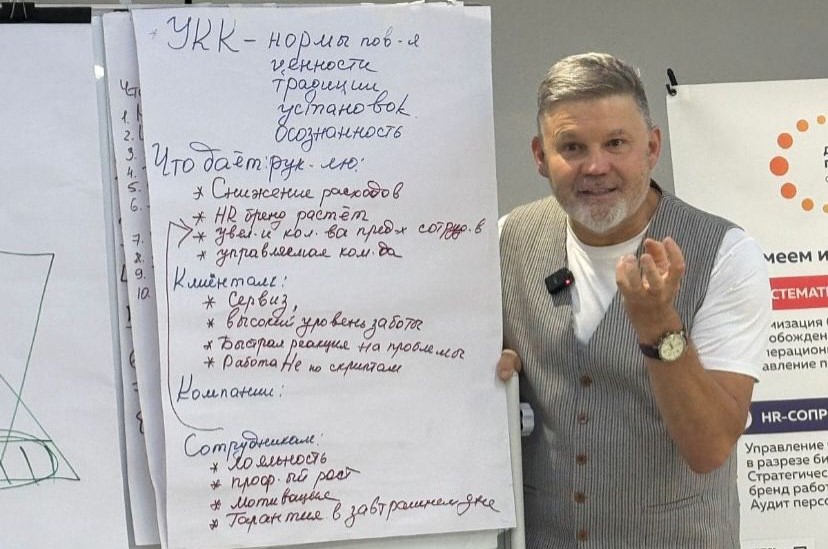 * УКК – нормы пов-я
ценности
традиции
установок
осознанность
Что даёт: рук-лю:
* Снижение расходов
* HR бренд растёт
* увел. и кол-ва пред-х сотруд-в
* управляемая ком-да
Клиентам:
* Сервиз,
* высокий уровень заботы
* Быстрая реакция на проблемы
* Работа Не по скриптам
Компании:
Сотрудникам:
* лояльность
* проф-ый рост
* Мотивация
* Гарантия в завтрашнем дне
Что
1.
2.
3.
4.
5.
6.
7.
8.
9.
10.
меем и
СТЕМАТ
мизация
обожден
перацион
авление п
HR-СОПР
Управление
в разрезе би
Стратегичес
бренд работ
Аудит персо